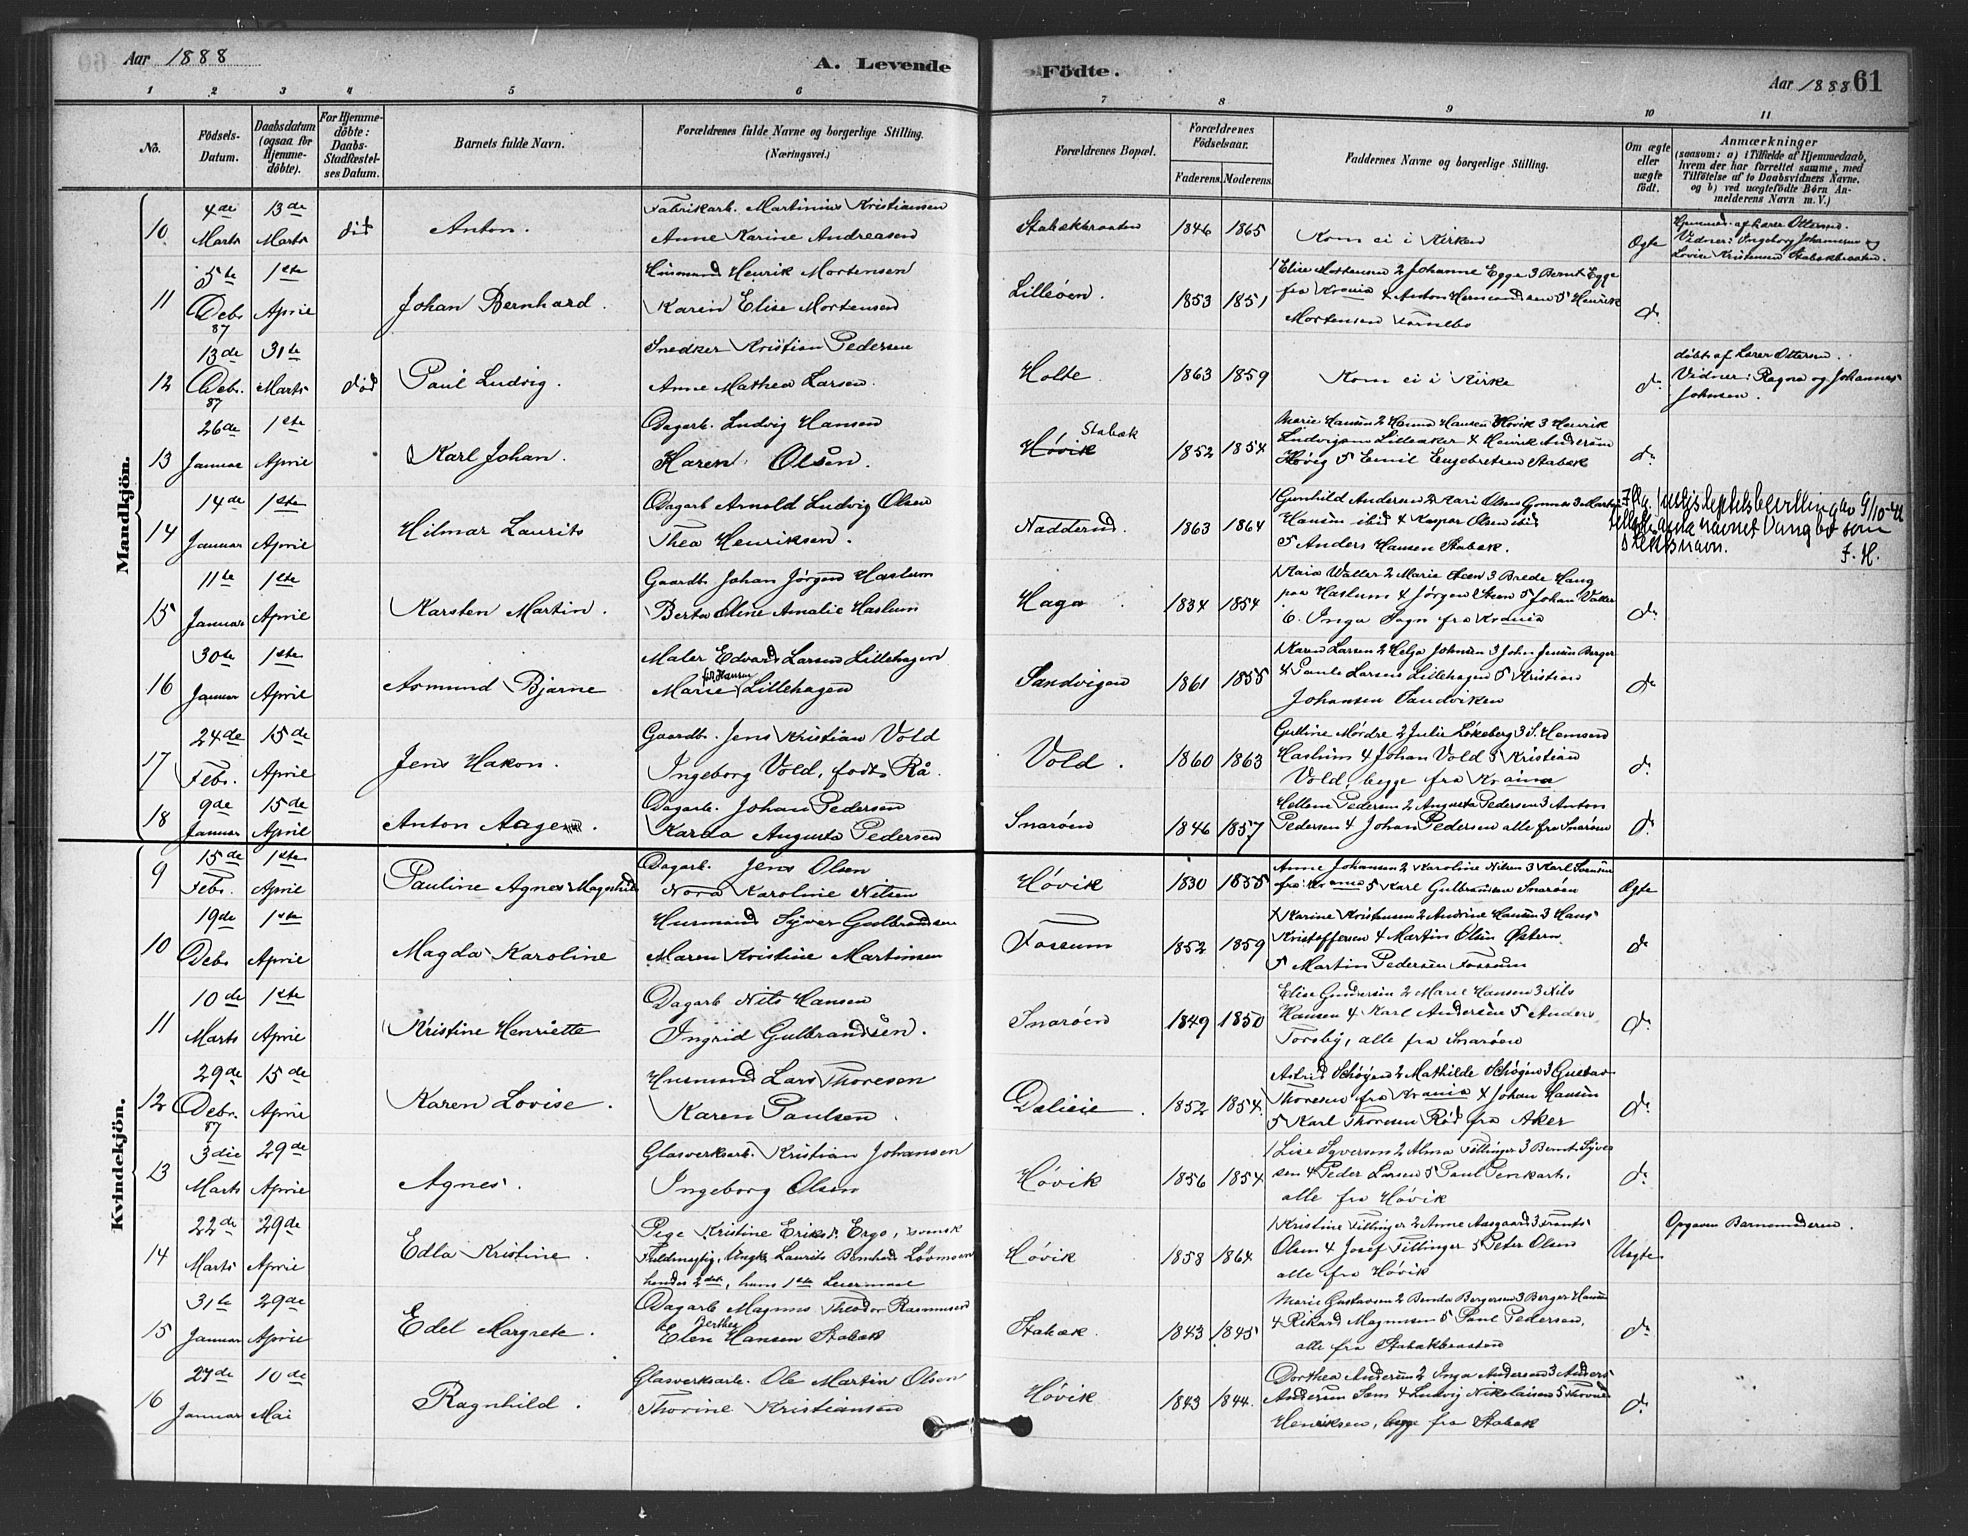 Aar 1888
A. Levende
Födte.
Aar 1888
61
1 2 3 4 5 6 7 8 9 10 11
No.
Födsels-Datum.
Daabsdatum (ogsaa for Hjemme-döbte).
For Hjemme-döbte: Daabs-Stadfæstel-ses Datum.
Barnets fulde Navn.
Forældrenes fulde Navne og borgerlige Stilling. (Næringsvei.)
Forældrenes Bopæl.
Forældrenes Födselsaar.
Faderens. Moderens.
Faddernes Navne og borgerlige Stilling.
Om ægte eller uægte födt.
Anmærkninger
(saasom: a) i Tilfælde af Hjemmedaab,
hvem der har forrettet samme, med
Tilföielse af to Daabsvidners Navne.
og b) ved uægtefödte Börn An-
melderens Navn m. V.)
Mandkjön.
10 4de Marts 13de Marts Anton.
Fabrikarb. Martinius Kristiansen
Anne Karine Andreasen
Stabækbraaten 1846 1865 Kom ei i Kirken Ægte
Vidner: Ingeborg Johannesen og
Lovise Kristensen Stabækbraaten.
11 5te Debr 87 1ste April Johan Bernhard.
Husmand Henrik Mortensen
Karin Elise Mortensen
Lilleøen. 1853 1851
1 Elise Mortensen 2 Johanne Egge 3 Bernt Egge
fra Krania 4 Anton Hermandsen 5 Henrik
Mortensen
do
12 13de Debr. 87 31te Marts død Paul Ludvig.
Snedker Kristian Pedersen
Anne Mathea Larsen.
Holte. 1863 1859 Kom ei i Kirke do
døbt af Lærer Ottersen.
Vidner: Ragna og Johannes
Johnsen.
13 26de Januar 1ste April Karl Johan.
Dagarb. Ludvig Hansen
Karen Olsen.
Høvik Stabæk 1852 1854
Marie Hansen 2 Hansen Høvik 3 Henrik
Ludvigsen Lilleaker 4 Henrik Andersen
Høvig 5 Emil Engebretsen Stabæk
do
14 14de Januar 1ste April Hilmar Laurits
Dagarb Arnold Ludvig Olsen
Thea Henriksen.
Nadderud. 1863 1864
1 Gunhild Andersen 2 Kari Olsen 3 Martin
Hansen ibid 4 Kaspar Olsen ibid
5 Anders Hansen Stabæk.
Ifl. justisdeptets bevilling av 9/10-41
navnet som
slektsnavn. F. H.
15 11te Januar 1ste April Karsten Martin.
Gaardb. Johan Jørgen Haslum
Berta Oline Amalie Haslum
Haga. 1834 1854
1 Kaia Walter 2 Marie Steen 3 Brede Haug
paa Haslum 4 Jørgen Steen 5 Johan
6. Inga Sogn fra Krania
do
16 30te Januar 1ste April Asmund Bjarne
Maler Edvard Larsen Lillehagen
Marie Lillehagen
født Hansen
Sandvigen 1861 1855
1 Karen Larsen 2 Helga Johnsen 3 John Jensen Berger
4 Larsen Lillehagen 5 Kristian
Johansen Sandviken
do
17 24de Febr. 15de April Jens Hakon.
Gaardb. Jens Kristian Vold
Ingeborg Vold, født Rå.
Vold. 1860 1863
Gulline Mørdre 2 Julie Løkeberg 3 S. Hemsen
Haslum 4 Johan Vold 5 Kristian
Vold, begge fra Krania
do
18 9de Januar 15de April Anton Aagen.
Dagarb. Johan Pedersen
Augusta Pedersen
Snarøen 1846 1857
Hellene Pedersen 2 Augusta Pedersen 3 Anton
Pedersen 4 Johan Pedersen alle fra Snarøen
do
Kvindekjön.
9 15de Febr. 1ste April Pauline Agnes Magnhild
Dagarb. Jens Olsen
Nora Karoline Nilsen
Høvik 1830 1855
Anne Johansen 2 Karoline Nilsen 3 Karl
fra Krania 5 Karl Gulbransen Snarøen
Ægte
10 19de Debr 1ste April Magda Karoline
Husmand Syver Gulbrandsen
Maren Kristine Martinsen
Fossum 1852 1859
1 Karine Kristensen 2 Andrine Hansen 3 Hans
Kristoffersen 4 Martin Olsen Østern
5 Martin Pedersen Fossum
do
11 10de Marts 1ste April Kristine Henriette
Dagarb Nils Hansen
Ingrid Gulbrandsen.
Snarøen 1849 1850
Elise Gundersen 2 Marie Hansen 3 Nils
Hansen 4 Karl Andersen 5 Anders
Torsby, alle fra Snarøen
do
12 29de Debr. 87 15de April Karen Lovise.
Husmand Lars Thoresen
Karen Paulsen.
Dalieie. 1852 1854.
Astrid Schøgen 2 Mathilde Schøgen 3 Gustav
Thoresen fra Krania 4 Johan Hansen
5 Karl Thoresen Rød fra Aker
do
13 3die Marts 29de April Agnes.
Glasverksarb. Kristian Johansen
Ingeborg Olsen
Høvik 1856 1854
1 Lise Syversen 2 Alma Fillinger 3 Bernt Syver
sen 4 Peder Larsen 5 Paul
alle fra Høvik
do
14 22de Marts 29de April Edla Kristine.
Pige Kristine Eriksd. Ergo, svensk
Fuldmægtig, Ungk. Laurits Bernhard Løvmoen
hendes 2det, hans 1ste Leiermaal
Høvik 1858 1864
1 Kristine Fillinger 2 Anne Aasgaard 3 Frants
Olsen 4 Josef Fillinger 5 Peter Olsen
alle fra Høvik
Uægte
Opgaven Barnemoderen.
15 31te Januar 29de April Edel Margrete.
Dagarb Magnus Theodor Rasmussen
Elen Hansen Stabæk
Stabæk. 1843 1845
Marie Gustavsen 2 Benda Bergersen 3 Berger Hansen
4 Rikard Magnusen 5 Paul Pedersen,
alle fra Stabækbraaten
do
16 27de Januar 10de Mai Ragnhild.
Glasverksarb. Ole Martin Olsen
Thorine Kristiansen
Høvik 1843 1844.
Dorthea Andersen 2 Inga Andersen 3 Anders
Andersen Sem 4 Ludvig Nikolaisen 5
Henriksen, begge fra Stabæk
do